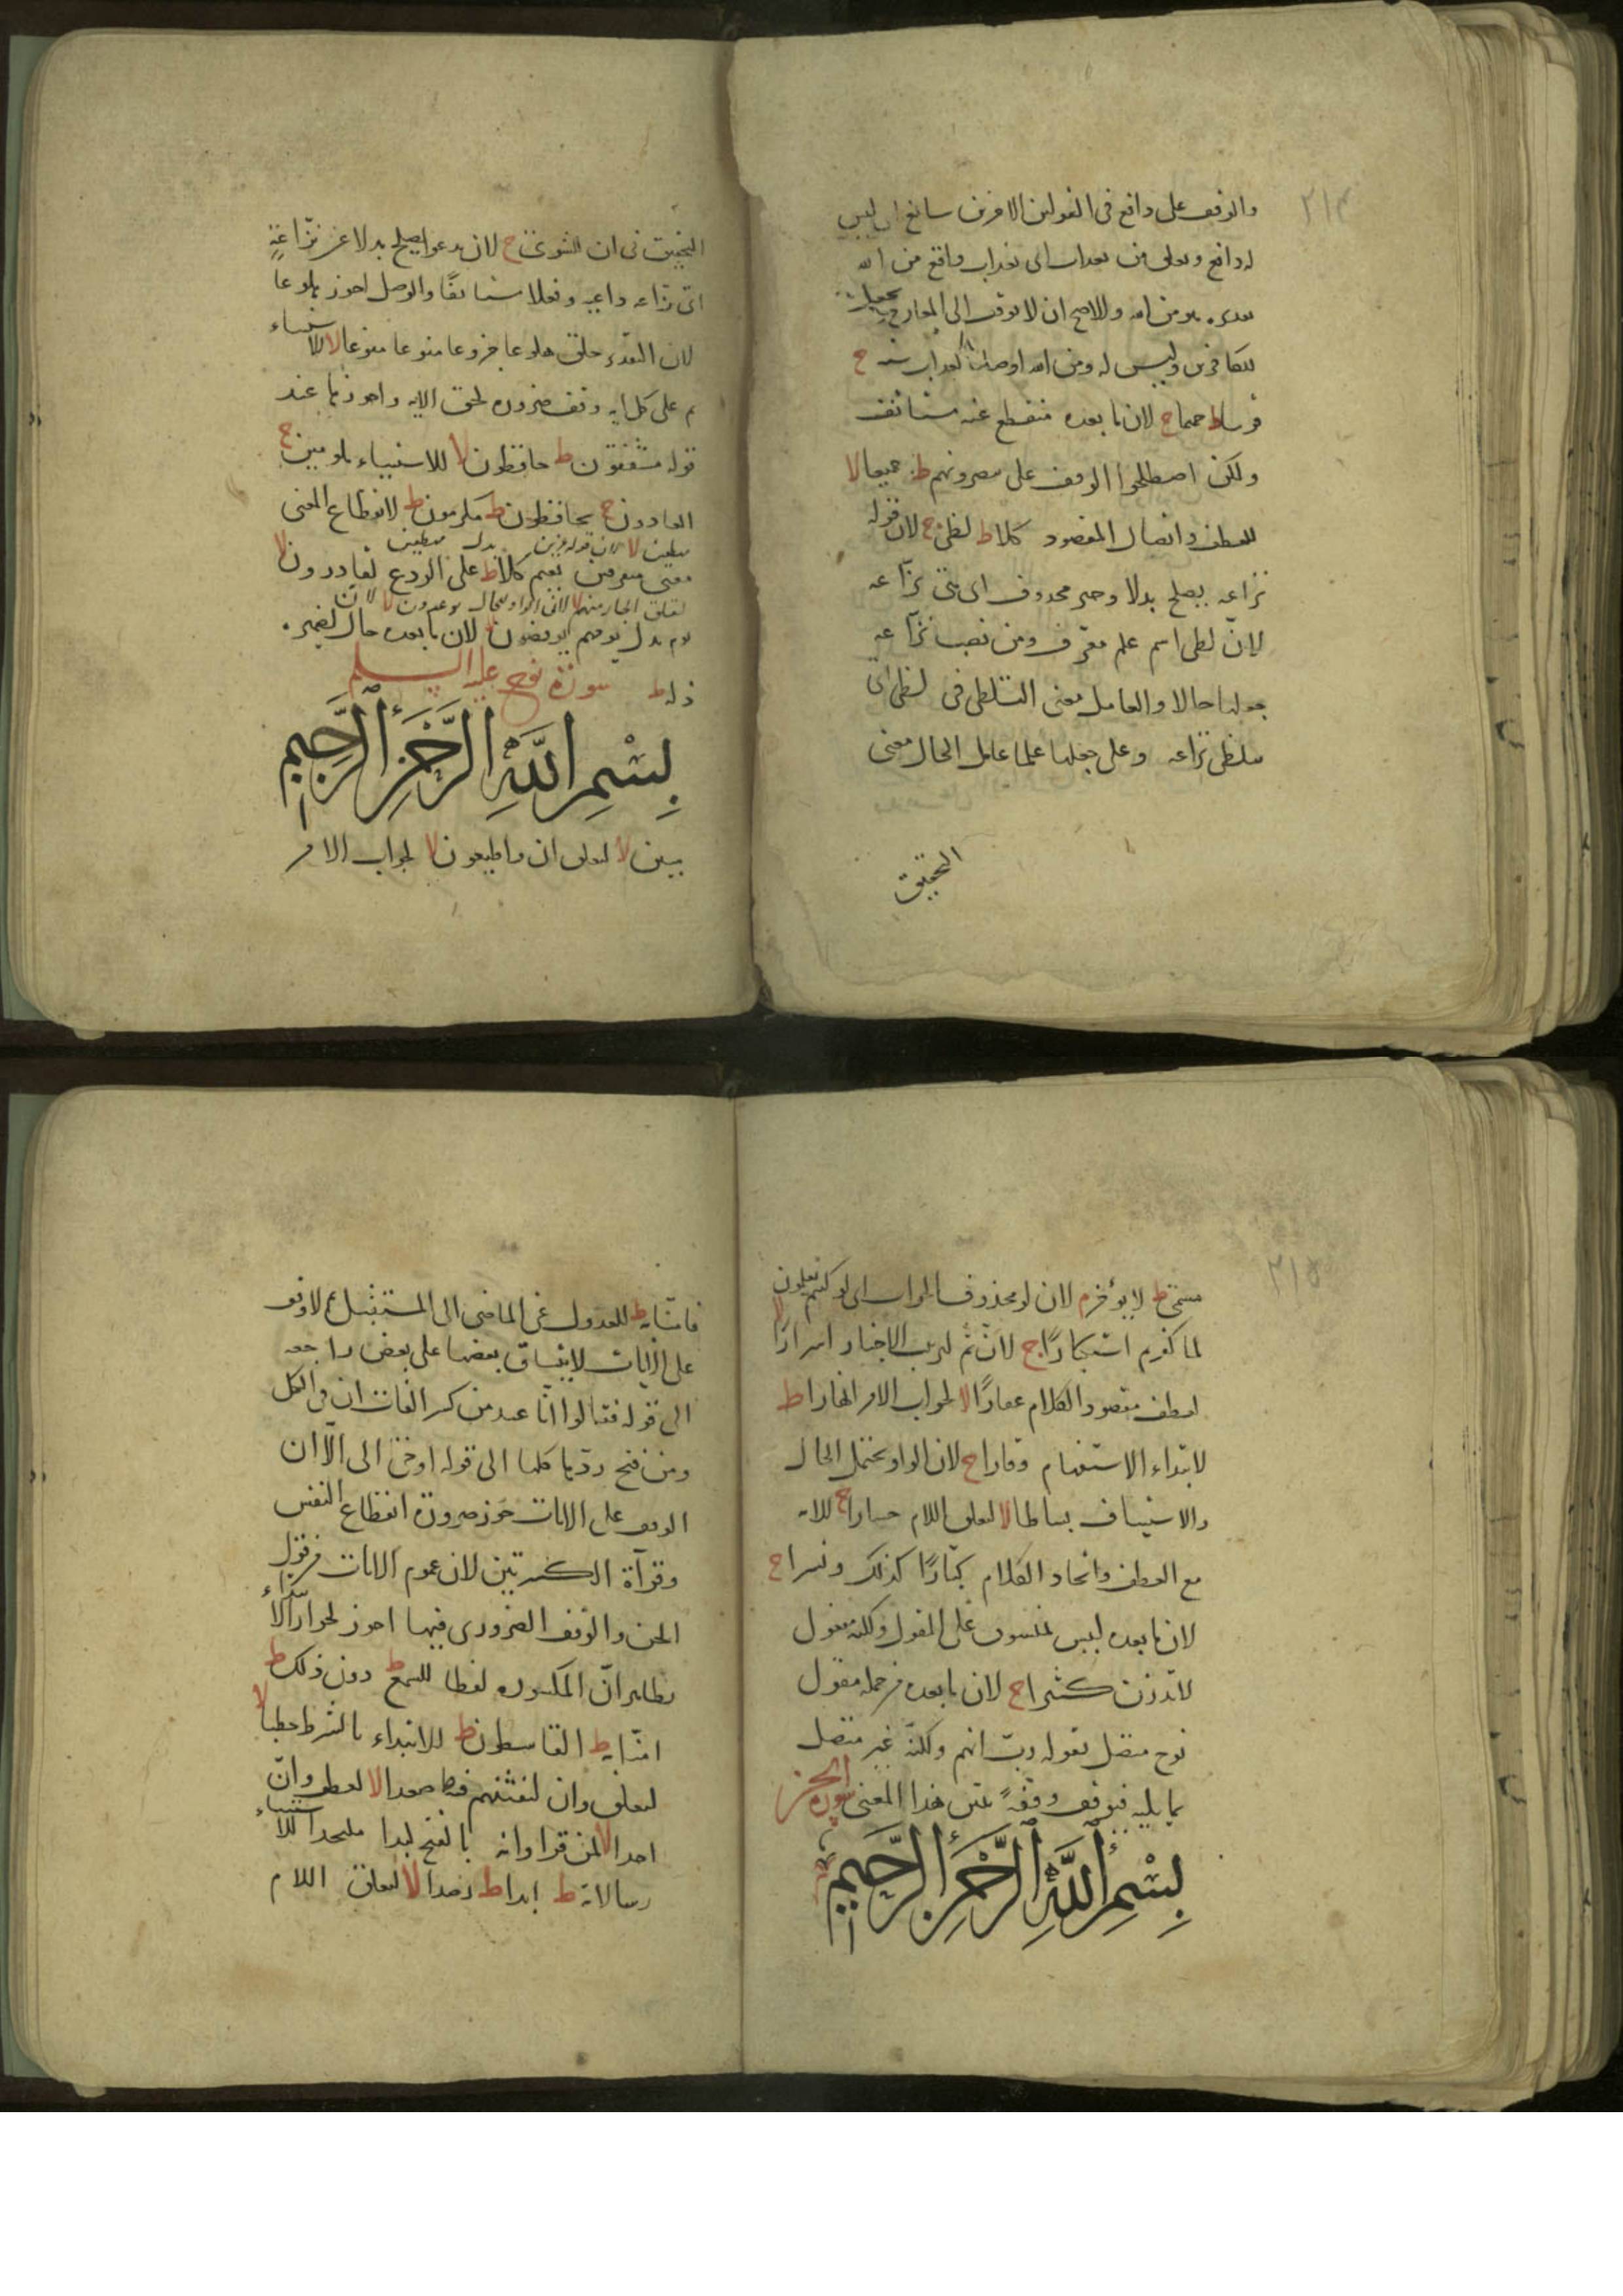 ٢١٤
والوقف على دافع في القولين الاخرين سائغ اي ليس
له دافع وتعلق من بعذاب اى بعذاب واقع من الله
بعده هو من الله والاصح ان لا يوقف الى المعارج بجعل
للكافرين وليس له ومن الله اوصافا لعذاب سنة ج
قريبا ط حميما ج لان ما بعده منقطع عنه مستانف
ولكن اصطلحوا الوقف على يبصرونهم ط جميعا لا
للعطف واتصال المقصود كلا ط لظى ج لان قوله
نزاعة يصلح بدلا وخبر محذوف اى هى نزاعة
لانّ لظى اسم علم معرف ومن نصب نزاعة
جعلها حالا والعامل معنى التلظى فى لظى اى
تتلظى نزاعة وعلى جعلها علما عامل الحال معنى
التحقيق
التحقيق فى ان للشوى ج لان تدعوا يصلح بدلا عن نزاعةٍ
اى نزاعة داعية وفعلا مستانفا والوصل اجوز هلوعا
لان التقدير خلق هلوعا جزوعا منوعا منوعا لا للاستثناء
ثم على كل اية وقف ضرورة لحق الاية واجوزها عند
قوله مشفقون ط حافظون لا للاستثناء ملومين ج
العادون ج يحافظون ط مكرمون ط لانقطاع المعنى
مهطعين لا لان قوله عزين بدل مهطعين
معنى معرضين نعيم كلا ط على الردع لقادرون لا
لتعلق الجار منهم لا لان الواو للحال يوعدون لا لان
يوم بدل يومهم يوفضون لا لان ما بعده حال لضمير
ذلة ط سورة نوح عليه السلم
بِسْمِ اللَّهِ الرَّحْمَنِ الرَّحِيمِ
مبين لا لتعلق ان واطيعون لا لجواب الامر
٢١٥
مسمى ط لا يؤخر م لان لو محذوف الجواب اى لو كنتم تعلمون
لما كفرتم استكبارًا ج لانّ ثم لترتيب الاخبار اسرارًا لا
لعطف مقصود الكلام غفارًا لا لجواب الامر انهارا ط
لابتداء الاستفهام وقارا ج لان الواو يحتمل الحال
والاستيناف بساطا لا لتعلق اللام خسارا ج للاية
مع العطف واتحاد الكلام كبّارًا كذلك ونسرا ج
لان ما بعده ليس بمنسوق على المقول ولكنه مقول
لا تذرن كثيرا ج لان ما بعده من جملة مقول
نوح متصل بقوله ربّ انهم ولكنّه غير متصل
بما يليه فيوقف وقفةً تبين هذا المعنى سورة الجن
بِسْمِ اللَّهِ الرَّحْمَنِ الرَّحِيمِ
فامنّا به ط للعدول عن الماضى الى المستقبل لا وقف
على الايات لاتساق بعضها على بعض راجعه
الى قوله فقالوا انّا عند من كسر الفات ان فى الكل
ومن فتح ردّها كلها الى قوله اوحى الى الّا ان
الوقف على الايات جوّز ضرورة انقطاع النفس
وقرآة الكسر تبين لان عموم الايات من قول
الجن والوقف الضرورى فيها اجوز لجواز الابتداء
بظاهر انّ المكسوره لفظا للسمع ط دون ذلك ط
امنّا به ط القاسطون ط للابتداء بالشرط حطبا لا
لتعلق وان لنفتنهم فيه ط صعدا لا لعطف وانّ
احدا لا لمن قرا وانه بالفتح لبدا ملتحدا للاستثناء
رسالاته ط ابدا ط رصدا لا لتعلق اللام